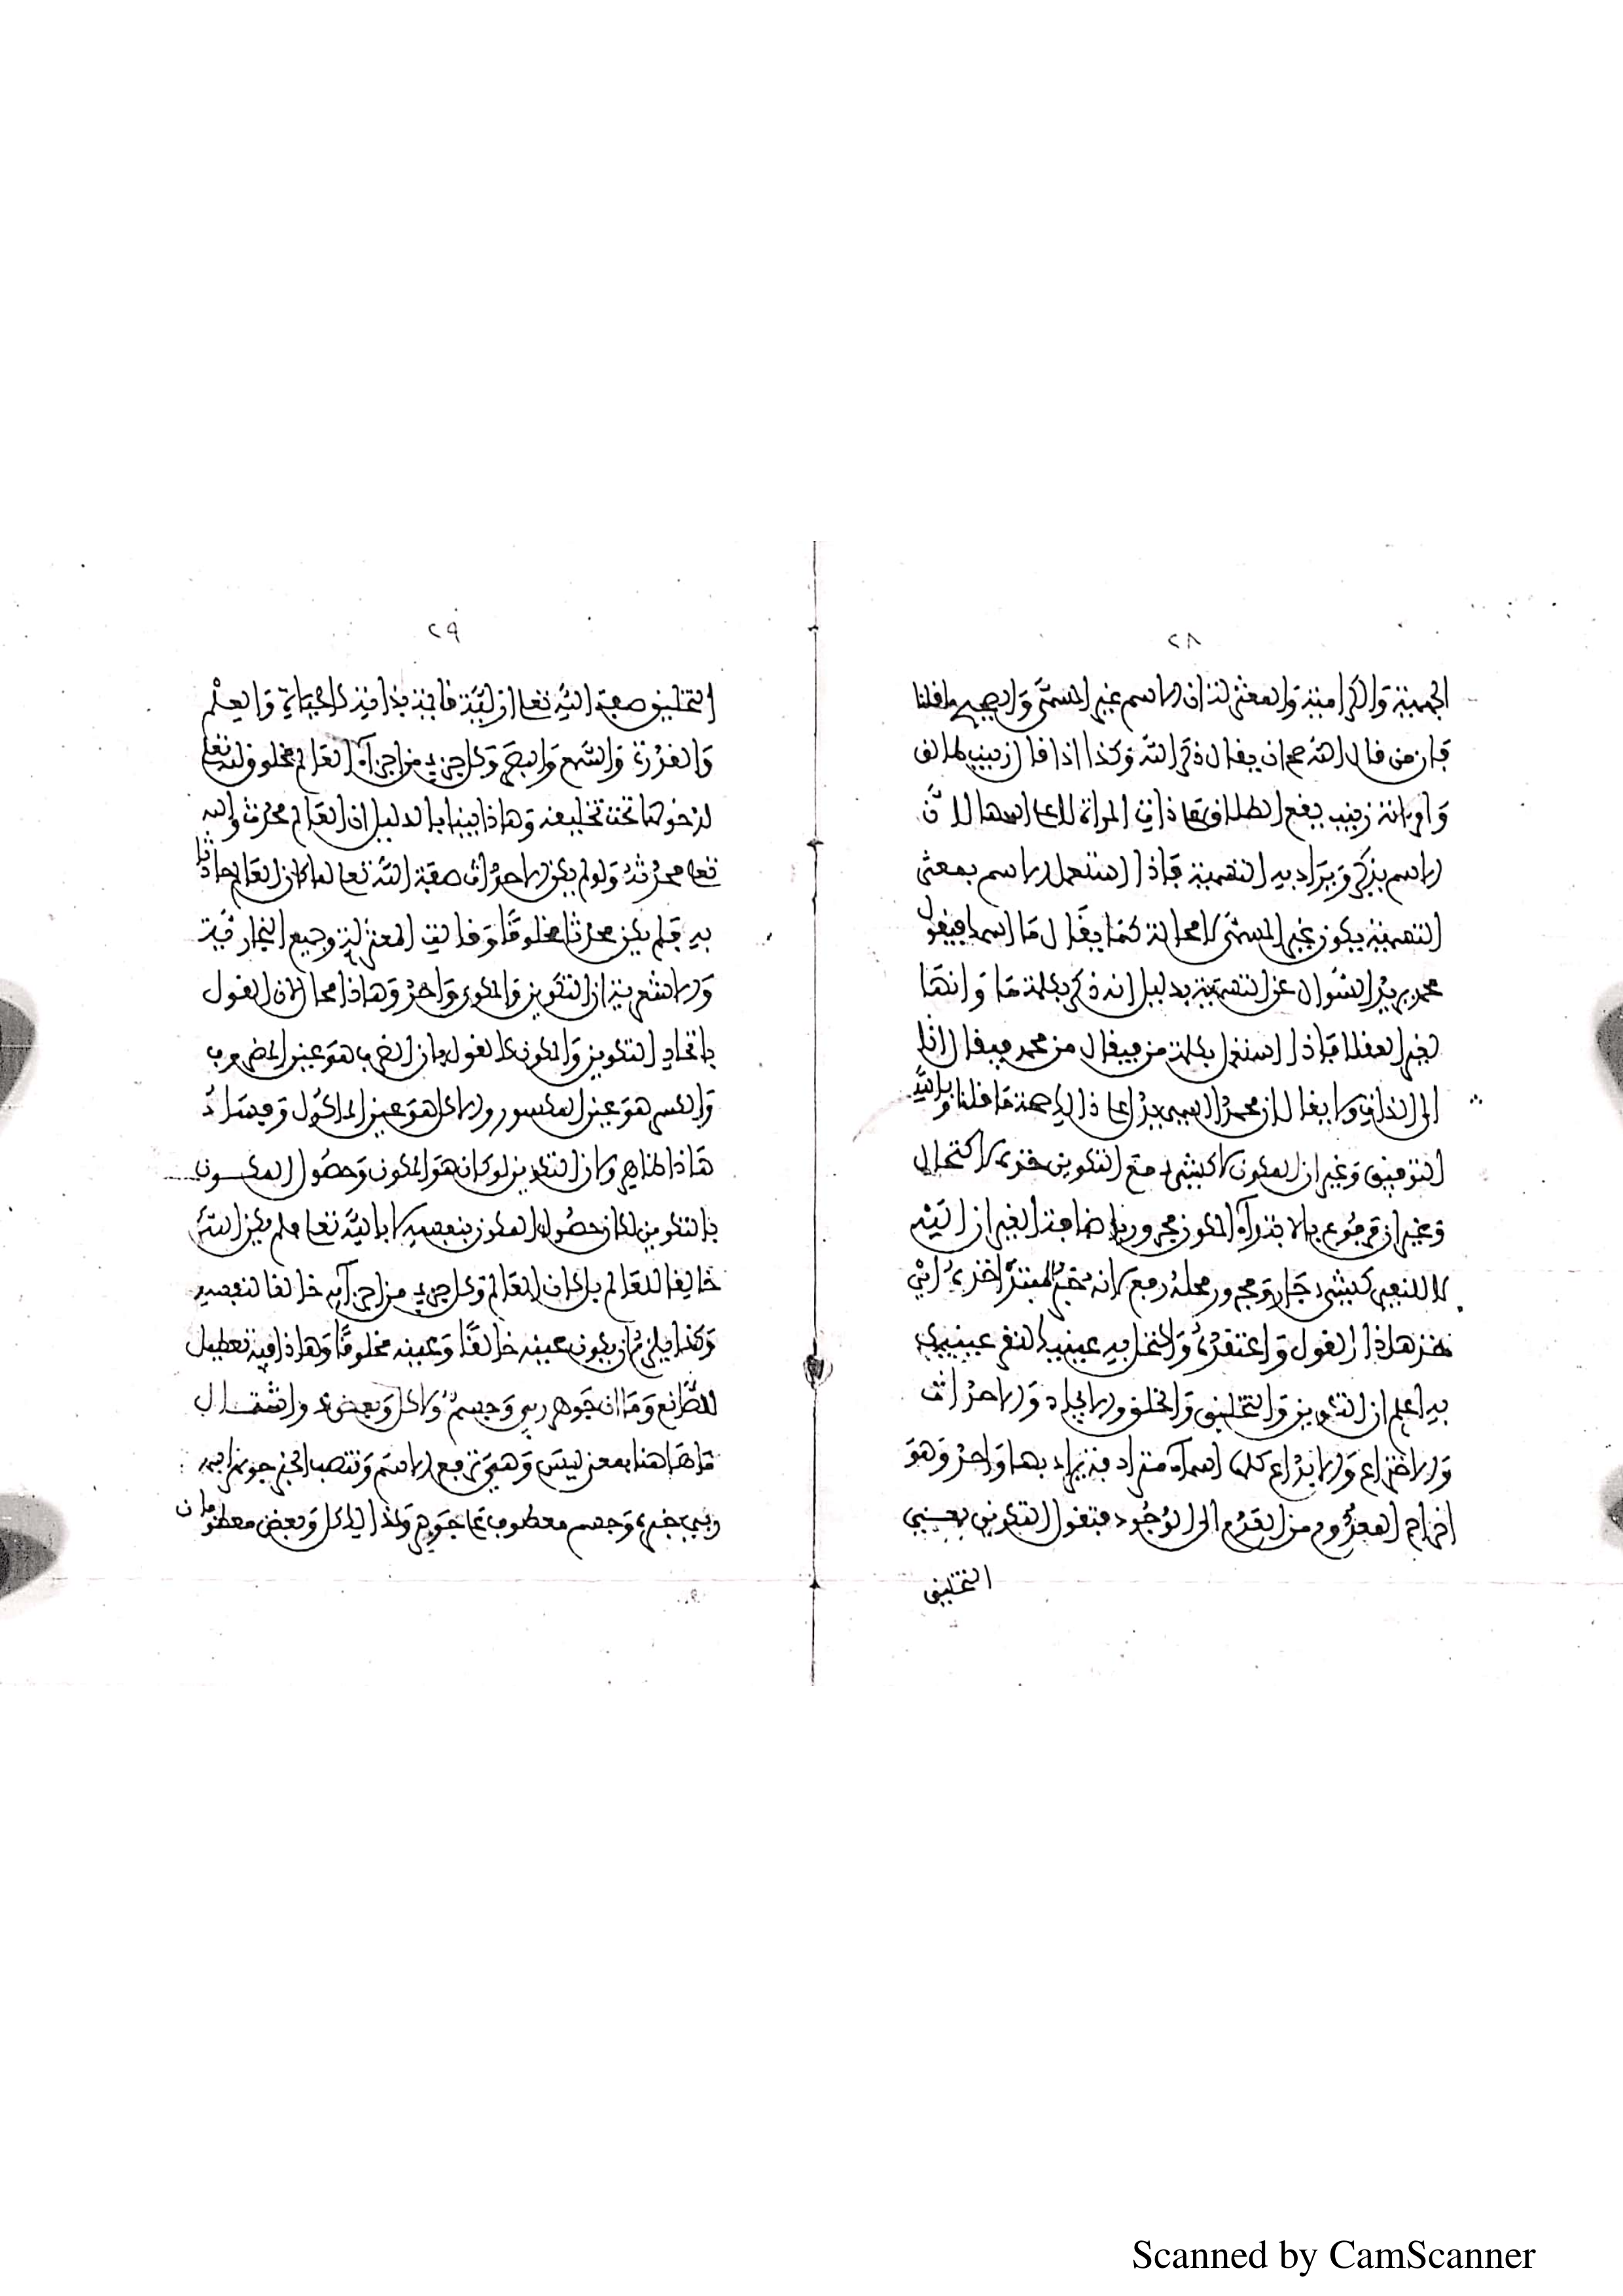 ٢٨
الجهمية والكرامية والمعتزلة ان الاسم غير المسمى والصحيح ما قلنا
فان من قال الله صح ان يقال ذكر الله وكذا اذا قال زينب طالق
وامراته زينب يقع الطلاق على ذات المراة لا على اسمها لان
الاسم يذكر ويراد به التسمية فاذا استعمل الاسم بمعنى
التسمية يكون غير المسمى لا محالة كما يقال ما اسمك فيقول
محمد يريد السؤال عن التسمية بدليل انه ذكر بكلمة ما وانها
لغير العقلا فاذا استعمل بكلمة من فيقال من محمد فيقال انا
الى الذات ولا يقال ان محمدا على ذا الجهة ما قلنا وبالله
التوفيق وغيران المكون لا كشيء مع التكوين خذه لاكتحال
وغيران مرفوع بالابتداء المكون مجرور باضافة الغيران اليه
لا للنفي كشيء جار ومجرور محله رفع لانه خبر المبتدا خذه اي
خذ هذا القول واعتقده والاكتحال به عينيك لتقر عينيك
به اعلم ان التكوين والتخليق والخلق والايجاد والاحداث
والاختراع والابداع كلها اسماء مترادفة يراد بها واحد وهو
اخراج المعدوم من العدم الى الوجود فتقول التكوين يعني
التخليق
٢٩
التخليق صفة الله تعالى ازلية قائمة بذاته كالحياة والعلم
والقدرة والسمع والبصر وكل جزء من اجزاء العالم مخلوق لله تعالى
لدخولها تحت تخليقه وهذا بينا بالدليل ان العالم محدث والله
تعالى محدثه ولو لم يكن الاحداث صفة الله تعالى لما كان العالم حادثا
به فلم يكن محدثا مخلوقا وقالت المعتزلة وجميع النجارية
والاشعرية ان التكوين والمكون واحد وهذا محال لان القول
باتحاد التكوين والمكون كالقول بان الضرب هو عين المضروب
والكسر هو عين المكسور والاكل هو عين الماكول وفساد
هذا ظاهر ولان التكوين لو كان هو المكون وحصول المكون
بالتكوين لكان حصول المكون بنفسه لا بالله تعالى فلم يكن الله
خالقا للعالم بل كان العالم وكل جزء من اجزائه خالقا لنفسه
وكذا يلزم ان يكون عينه خالقا وعينه مخلوقا وهذا فيه تعطيل
للصانع وما ان جوهر ربي وجسم ولا كل وبعض ذو اشتمال
ما هاهنا بمعنى ليس وهي ترفع الاسم وتنصب الخبر جوهر اسمه
وربي خبره وجسم معطوف على جوهر وكذا الكل وبعض معطوفان
Scanned by CamScanner